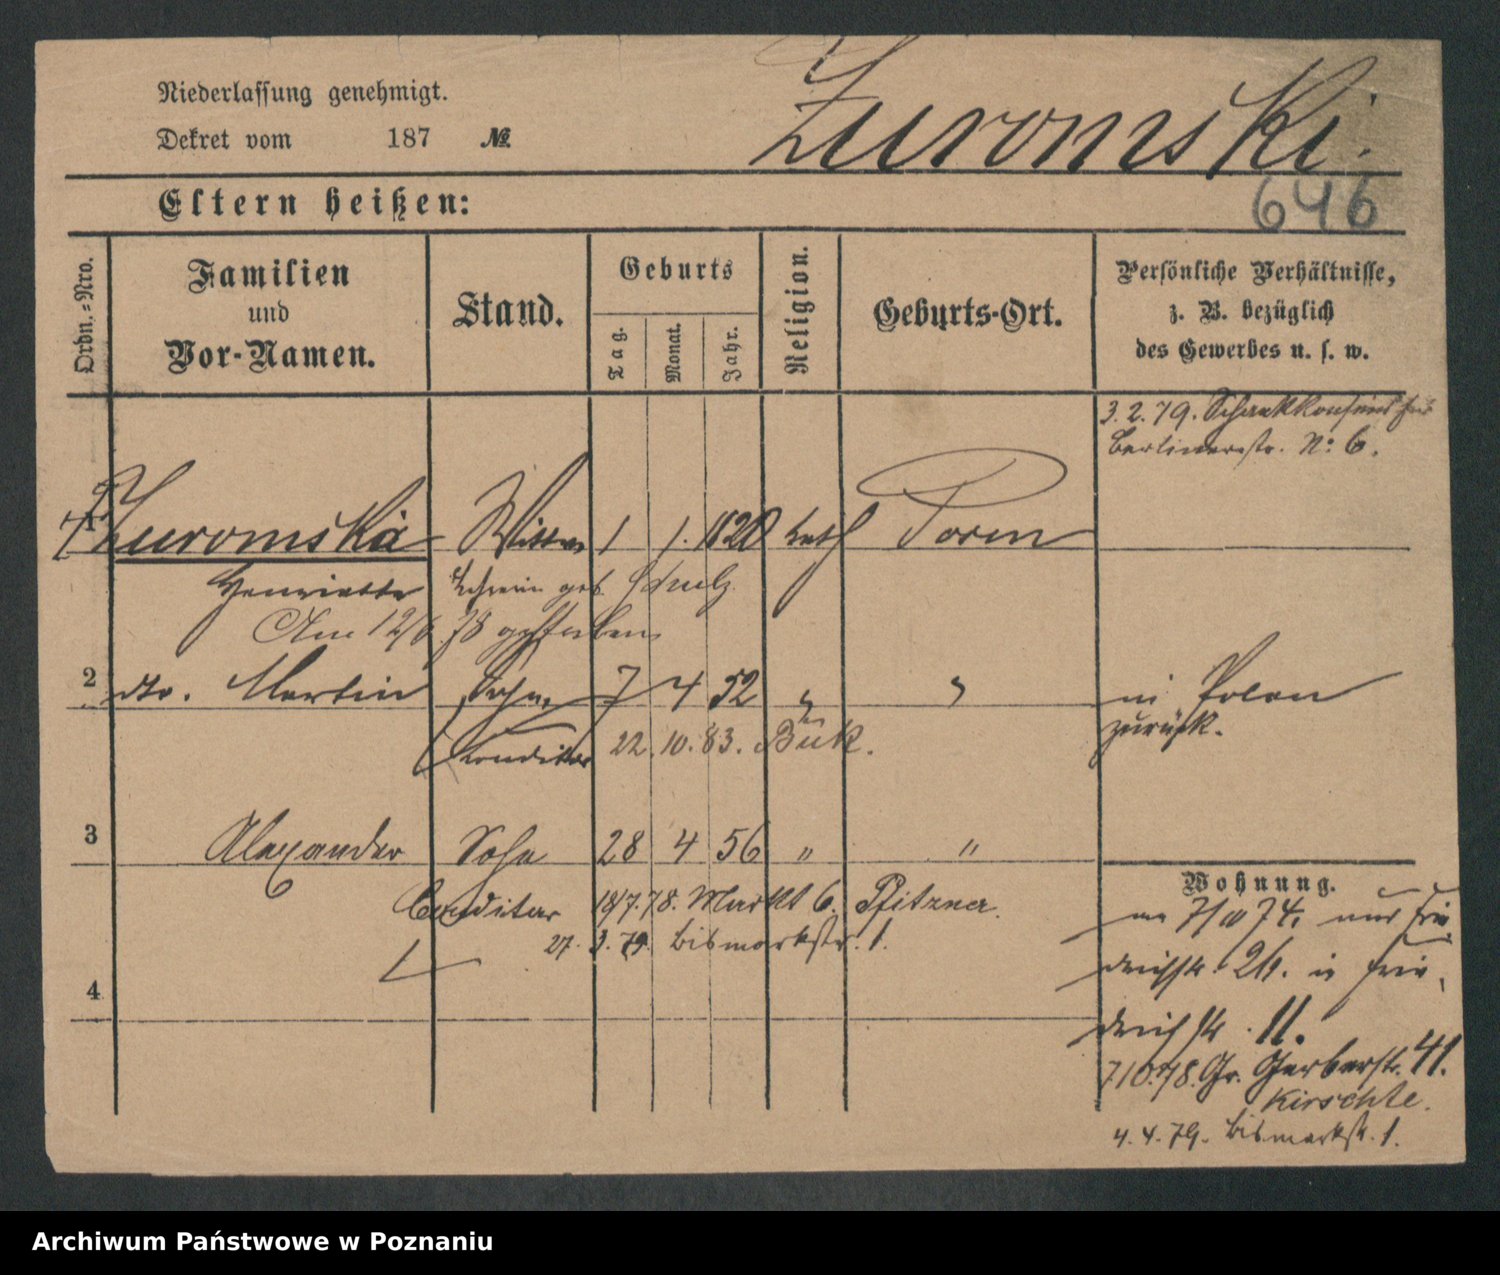 Niederlassung genehmigt.
Dekret vom 187 №
Żuromski.
Eltern heißen:
646
Ordn.-Nro.
Familien
und
Vor-Namen.
Stand.
Geburts
Tag.
Monat.
Jahr.
Religion.
Geburts-Ort.
Persönliche Verhältnisse,
z. B. bezüglich
des Gewerbes u. s. w.
3. 2. 79. Schankkonsens für
Berlinerstr. No 6.
1 Żuromska Wittwe 1 1. 1820 kath Posen
Henriette geb. Schulz
Am 12/6 78 gestorben
2 dto. Martin Sohn 7 4 52 " " in Polen
zurück.
Conditor 22. 10. 83. Buk.
3 Alexander Sohn 28 4 56 " "
Wohnung.
Conditor 18/7. 78. Markt 6. Pfitzner.
27. 3. 79. Bismarkstr. 1.
4
7/10 74. Frie
drichstr. 26. Frie
drichstr. 11.
7 10. 78. Gr. Gerberstr. 41.
Kirschte.
4. 4. 79. Bismarkstr. 1.
Archiwum Państwowe w Poznaniu